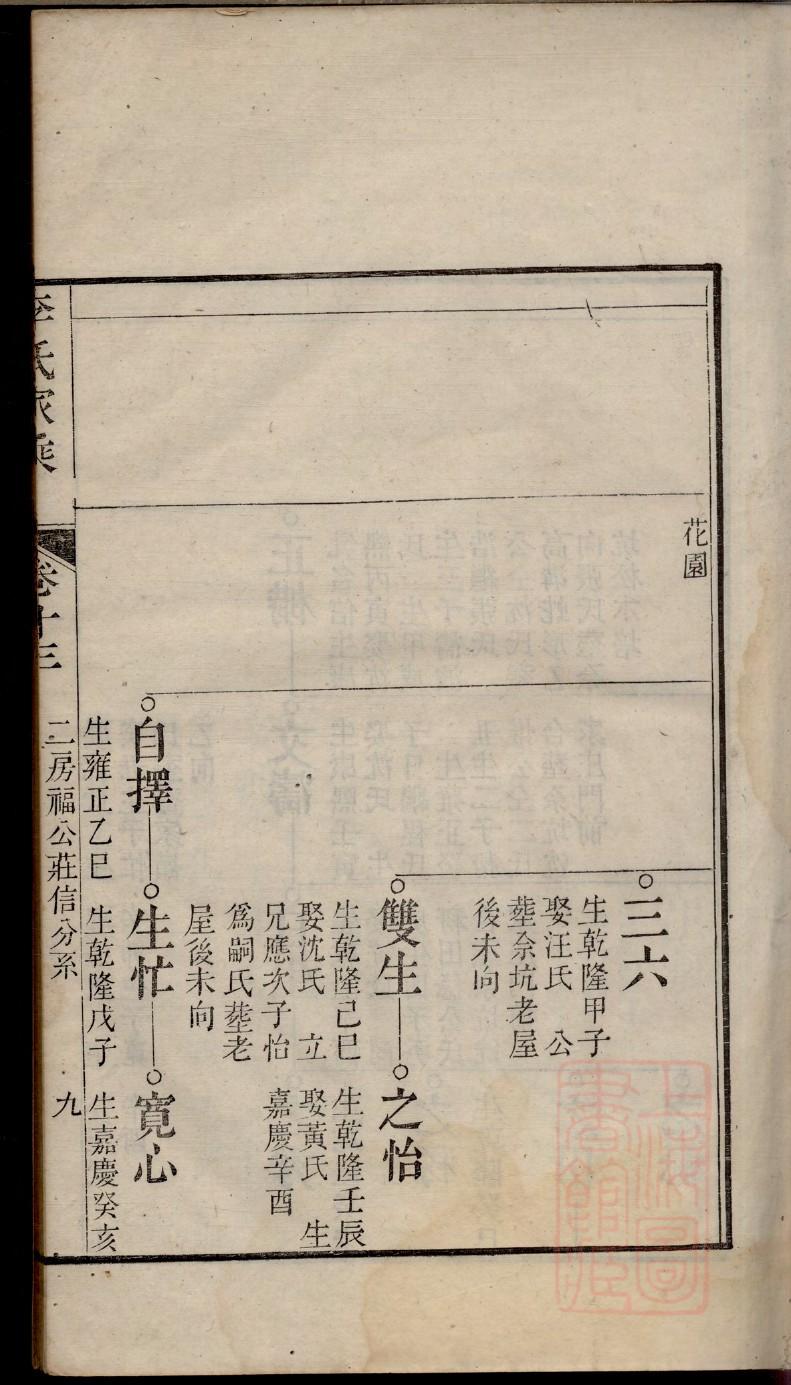 花園
三六
生乾隆甲子
娶汪氏　公
塟佘坑老屋
後未向
雙生
生乾隆己巳
娶沈氏　立
兄應次子怡
爲嗣氏塟老
屋後未向
之怡
生乾隆壬辰
娶黃氏　生
嘉慶辛酉
自擇
生雍正乙巳
生忙
生乾隆戊子
寛心
生嘉慶癸亥
李氏家乘
卷十三
二房福公莊信分系
九